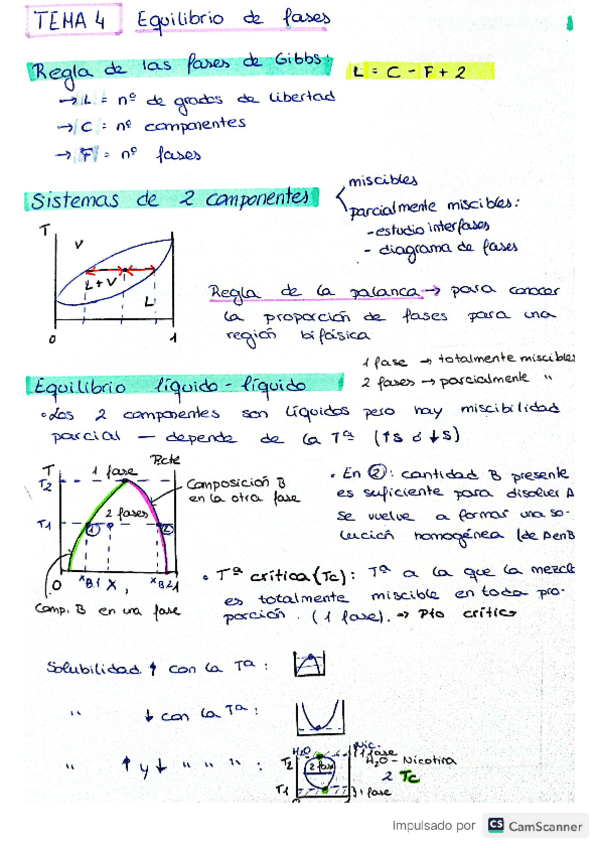 TEMA 4 Equilibrio de fases
1
Regla de las fases de Gibbs: L = C - F + 2
→ L = nº de grados de libertad
→ C = nº componentes
→ F = nº fases
Sistemas de 2 componentes
miscibles
parcialmente miscibles:
- estudio interfases
- diagrama de fases
T
V
L+V
L
0 1
Regla de la palanca → para conocer
la proporción de fases para una
región bifásica
1 fase → totalmente miscibles
2 fases → parcialmente "
Equilibrio líquido-líquido
• Los 2 componentes son líquidos pero hay miscibilidad
parcial — depende de la Tª (↑S ó ↓S)
T 1 fase P.cte
T2
Composición B
en la otra fase
2 fases
T1 1 2
0 XB.1 X, XB.2 1
Comp. B en una fase
• En ②: cantidad B presente
es suficiente para disolver A
se vuelve a formar una so-
lución homogénea (de A en B
• Tª crítica (Tc): Tª a la que la mezcla
es totalmente miscible en toda pro-
porción. (1 fase). → Pto crítico
Solubilidad ↑ con la Tª:
" ↓ con la Tª:
" ↑ y ↓ " " " :
H2O Nic.
1 fase
T2 2 fases H2O - Nicotina
2 Tc
T1 1 fase
Impulsado por CS CamScanner